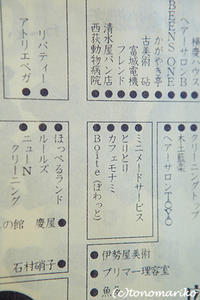 棒慶ハウス
ヘアーサロンB
BEEN'S ONE
かがやき亭
古美術 砧
富城電機
フレンド
清水屋パン店
西荻動物病院
リバティー
アトリエベガ
クリーニングトップ
木土藍楽
ヘアーサロンTOYO
ミニメードサービス
とりとり
カフェモナミ
Boite（ぽわっと）
ほっぺるランド
ルールズ
ニューN
クリーニング
の館 慶屋
石村硝子
伊勢屋美術
プリマー理容室
魚
(c)tonomariko